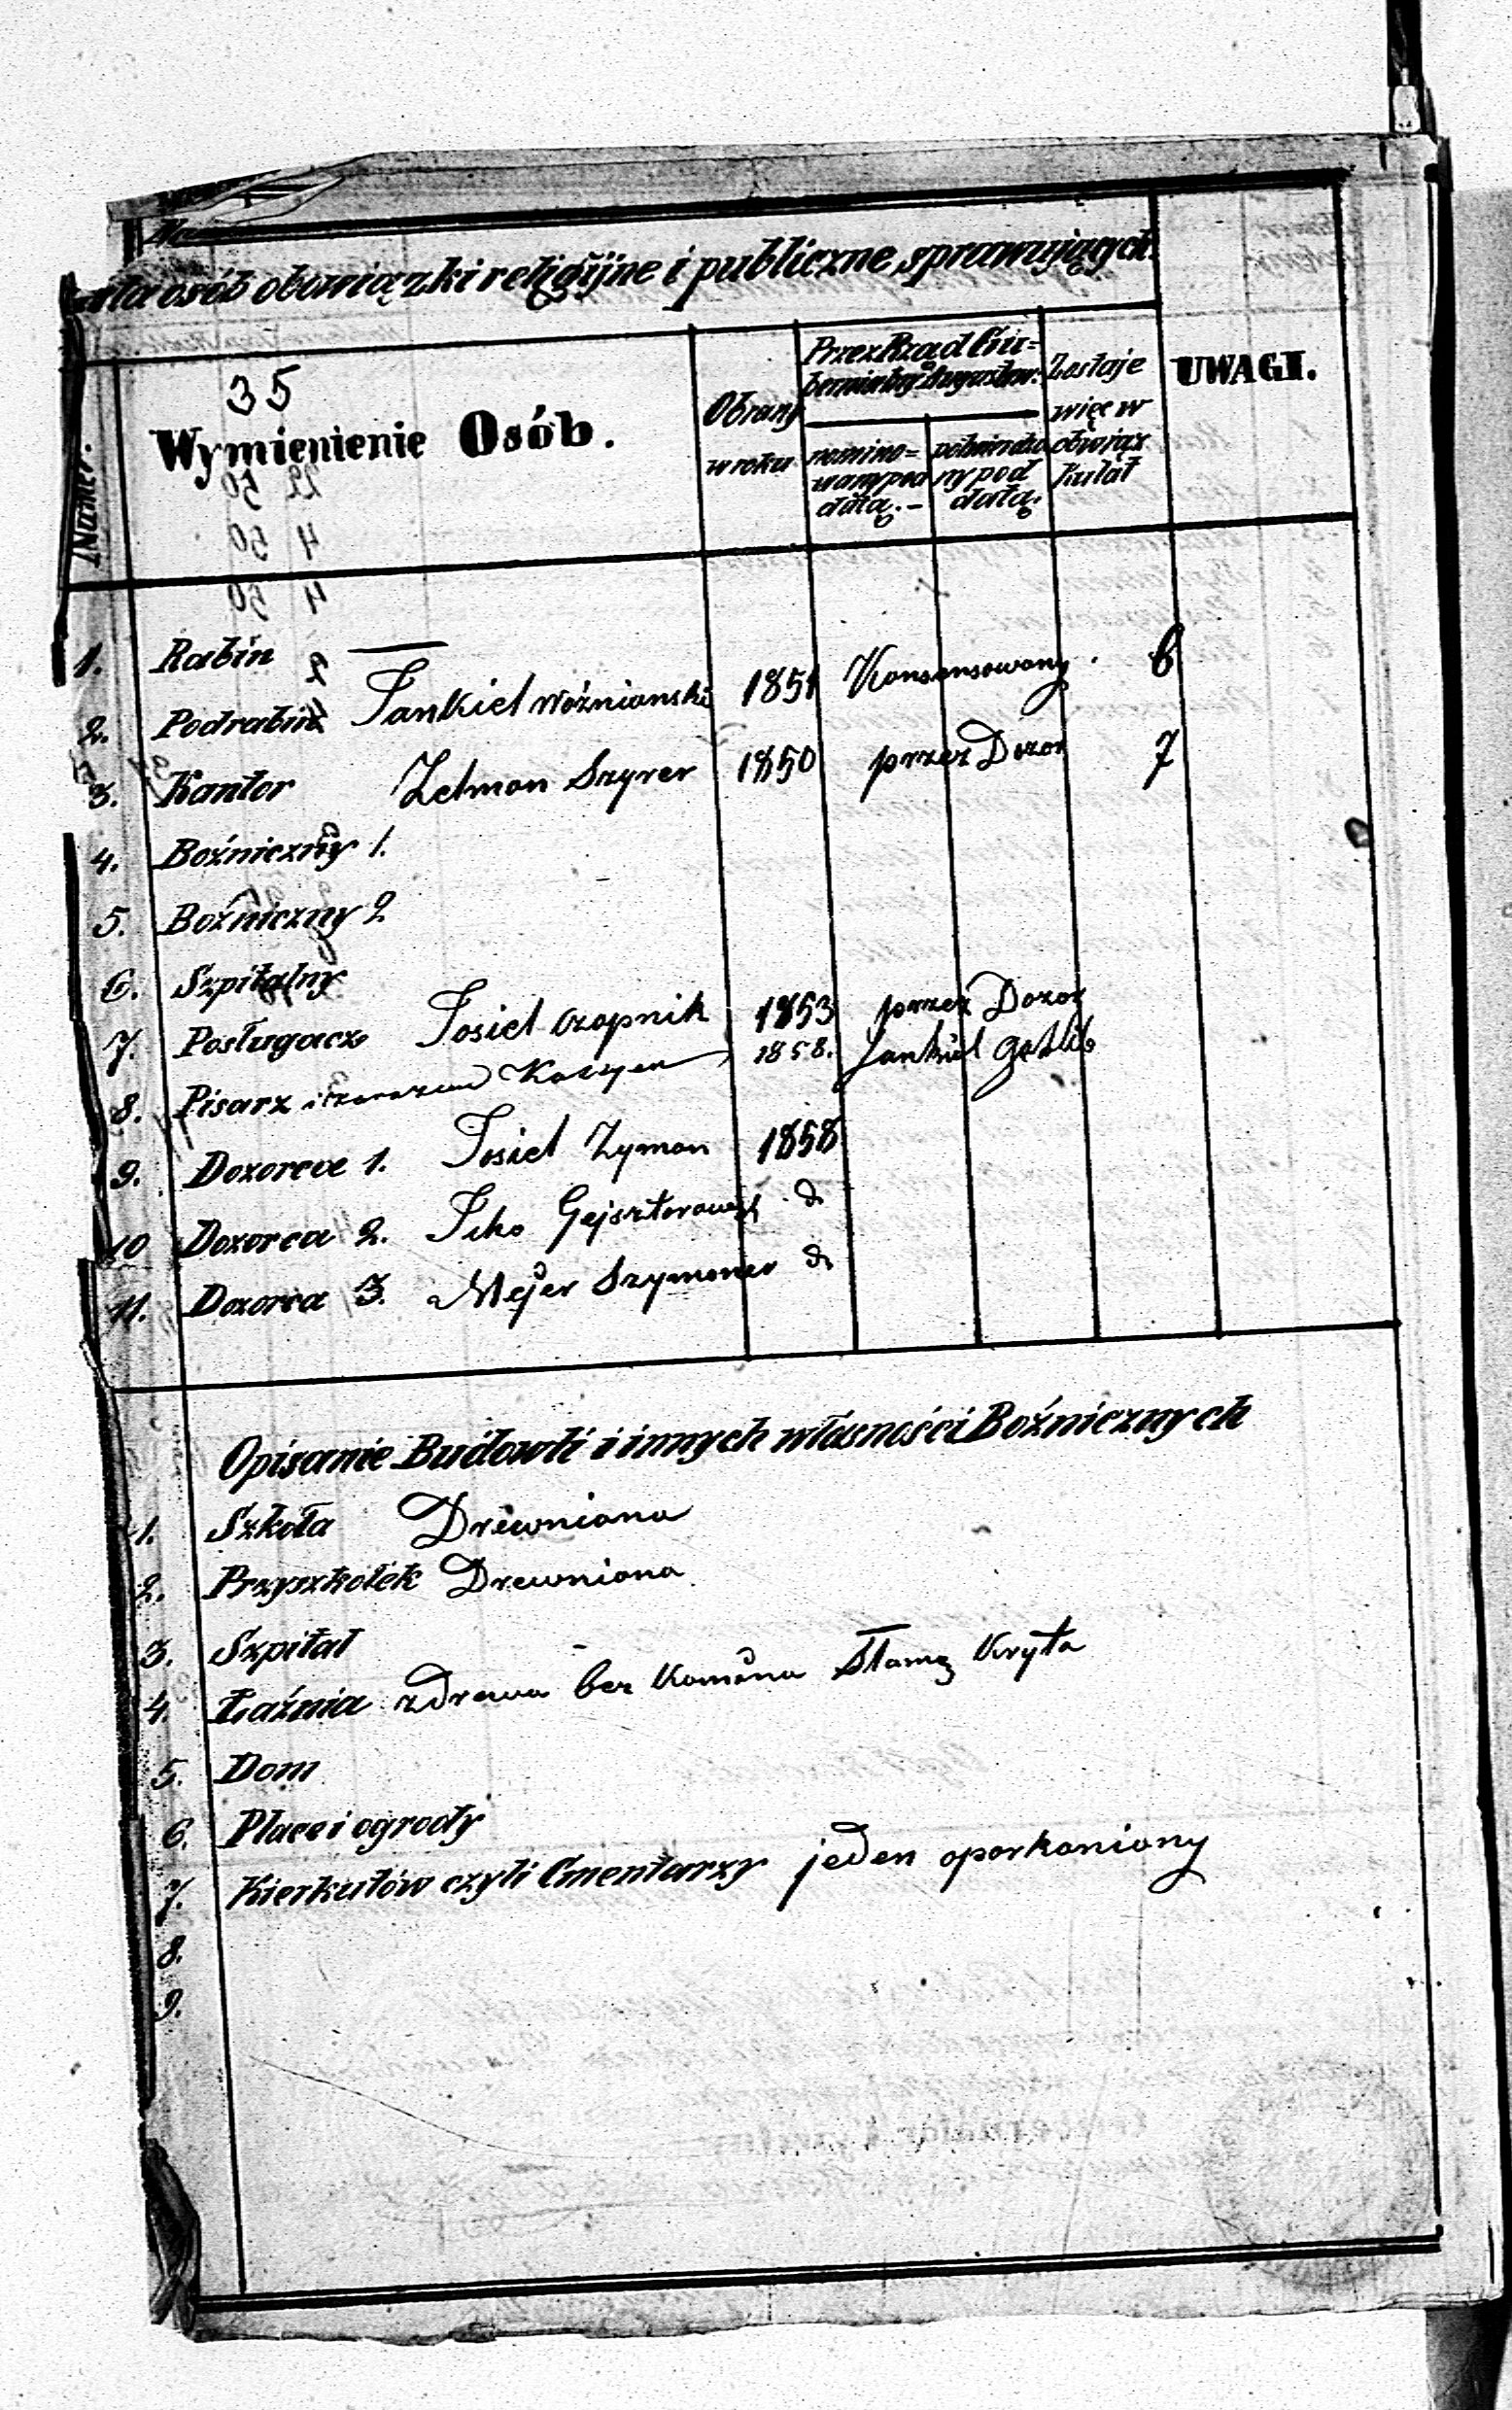 osób obowiązki religijne i publiczne sprawujących
Numer.
35
Wymienienie Osób.
Obrany w roku
Przez Rząd Gubernialny Augustow:
nomino=wany pod datą.-
potwierdzony pod datą.
Zostaje więc w obowiąz ku lat
UWAGI.
1. Rabin —
2. Podrabin Jankiel Woźnianski 1851 Konsensowany. 6
3. Kantor Zelman Szyrer 1850 przez Dozor 7
4. Bożniczny 1.
5. Bożniczny 2
6. Szpitalny
7. Posługacz Josiel Czopnik 1853 przez Dozor
8. Pisarz i zarazem Kassyer 1858. Jankiel Gotlib
9. Dozorca 1. Josiel Zyman 1858
10 Dozorca 2. Icko Gejsztorowski d
11. Dozorca 3. Mejer Szymoner d
Opisanie Budowli i innych własności Bożnicznych
1. Szkoła Drewniana
2. Przyszkołek Drewniana
3. Szpital
4. Łaźnia z drewa bez Komina Słomą Kryta
5. Dom
6. Place i ogrody
7. Kierkutów czyli Cmentarzy jeden oparkaniony
8.
9.